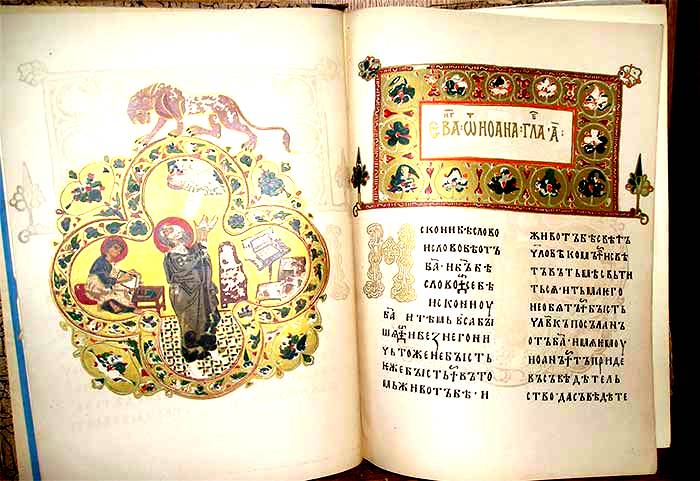 ЕВА҃ · ѾИОАНА · ГЛА · А҃ :
ИСКОНИБѢСЛОВО
ИСЛОВОБѢОТЪ
Б҃А · ИБ҃ЪБѢ
СЛОВО · СЕБѢ
ИСКОНИОУ
Б҃А · ИТѢМЬВСАБЫ
ШѦ · ИБЕЗНЕГОНИ
ЧЬТОЖЕНЕБЫСТЬ
ѤЖЕБЫСТЬ · ВЪТО
МЬЖИВОТЪБѢ · И
ЖИВОТЪБѢСВѢТЪ
ЧЛОВѢКОМЪ · ИСВѢ
ТЪВЪТЬМѢСВЬТИ
ТЬСѦ · ИТЬМАѤГО
НЕОБѦТЪ · БЫСТЬ
ЧЛ҃ВКЪПОСЪЛАНЪ
ОТЪБ҃А · ИМѦѤМОУ
ИОАНЪ · ТЪПРИДЕ
ВЪСЪВѢДѢТЕЛЬ
СТВО · ДАСЪВѢДѢТЕ